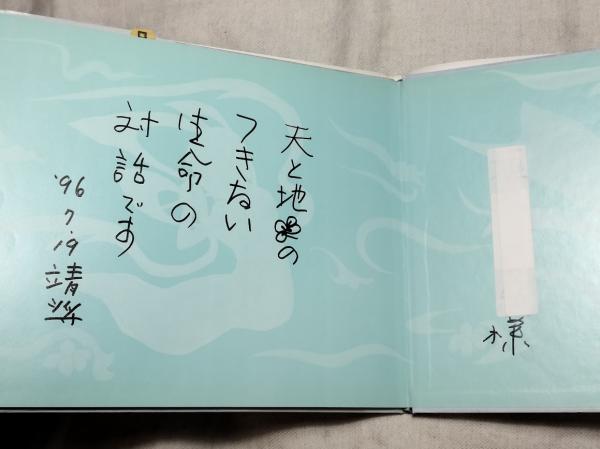 様
天と地の
つきない
生命の
対話です
'96
7.19
靖